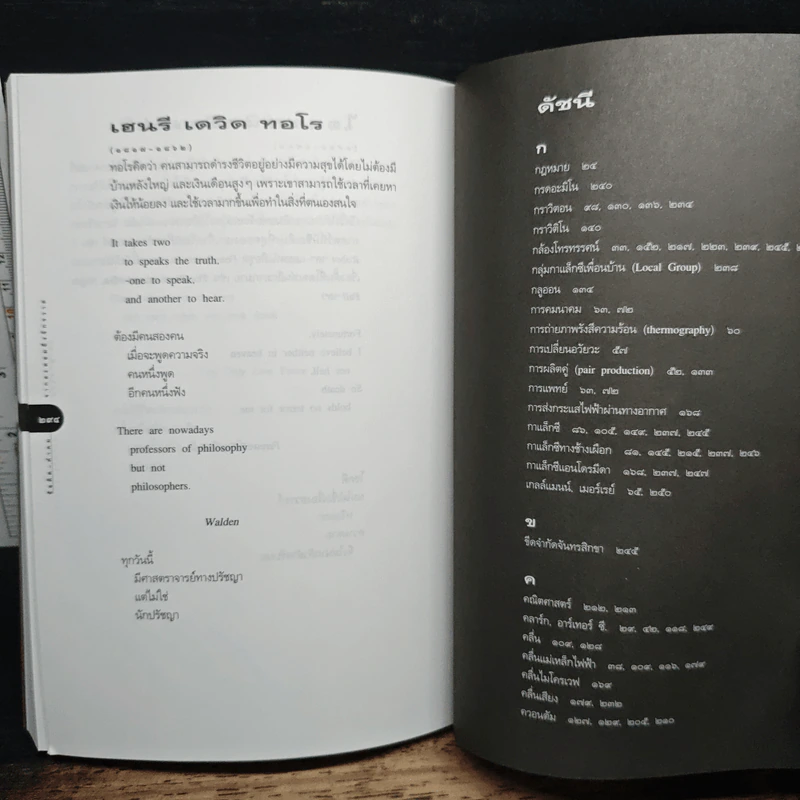 เฮนรี เดวิด ทอโร
(๑๘๑๗-๑๘๖๒)
ทอโรคิดว่า คนสามารถดำรงชีวิตอยู่อย่างมีความสุขได้โดยไม่ต้องมี
บ้านหลังใหญ่ และเงินเดือนสูงๆ เพราะเขาสามารถใช้เวลาที่เคยหา
เงินให้น้อยลง และใช้เวลามากขึ้นเพื่อทำในสิ่งที่ตนเองสนใจ
It takes two
to speaks the truth.
-one to speak,
and another to hear.
ต้องมีคนสองคน
เมื่อจะพูดความจริง
คนหนึ่งพูด
อีกคนหนึ่งฟัง
๒๙๔
There are nowadays
professors of philosophy
but not
philosophers.
Walden
ทุกวันนี้
มีศาสตราจารย์ทางปรัชญา
แต่ไม่ใช่
นักปรัชญา
ดัชนี
ก
กฎหมาย ๒๕
กรดอะมิโน ๒๔๐
กราวิตอน ๙๘, ๑๓๐, ๑๓๖, ๒๓๔
กราวิติโน ๑๔๐
กล้องโทรทรรศน์ ๓๓, ๑๕๒, ๒๑๗, ๒๒๓, ๒๓๙, ๒๔๕,
กลุ่มกาแล็กซีเพื่อนบ้าน (Local Group) ๒๓๘
กลูออน ๑๓๔
การคมนาคม ๖๓, ๗๒
การถ่ายภาพรังสีความร้อน (thermography) ๖๐
การเปลี่ยนอวัยวะ ๕๗
การผลิตคู่ (pair production) ๕๒, ๑๓๓
การแพทย์ ๖๓, ๗๒
การส่งกระแสไฟฟ้าผ่านทางอากาศ ๑๖๘
กาแล็กซี ๘๖, ๑๐๕, ๑๔๙, ๒๓๗, ๒๔๕
กาแล็กซีทางช้างเผือก ๘๑, ๑๔๕, ๒๑๕, ๒๓๗, ๒๔๖
กาแล็กซีแอนโดรมีดา ๑๖๘, ๒๓๗, ๒๔๗
เกลล์แมนน์, เมอร์เรย์ ๖๕, ๒๕๐
ข
ขีดจำกัดจันทรสิกขา ๒๔๕
ค
คณิตศาสตร์ ๒๑๒, ๒๑๓
คลาร์ก, อาร์เทอร์ ซี. ๒๙, ๔๒, ๑๑๘, ๒๔๙
คลื่น ๑๐๙, ๑๒๘
คลื่นแม่เหล็กไฟฟ้า ๓๘, ๑๐๙, ๑๑๖, ๑๗๙
คลื่นไมโครเวฟ ๑๖๙
คลื่นเสียง ๑๗๙, ๒๓๒
ควอนตัม ๑๒๗, ๑๒๙, ๒๐๕, ๒๑๐